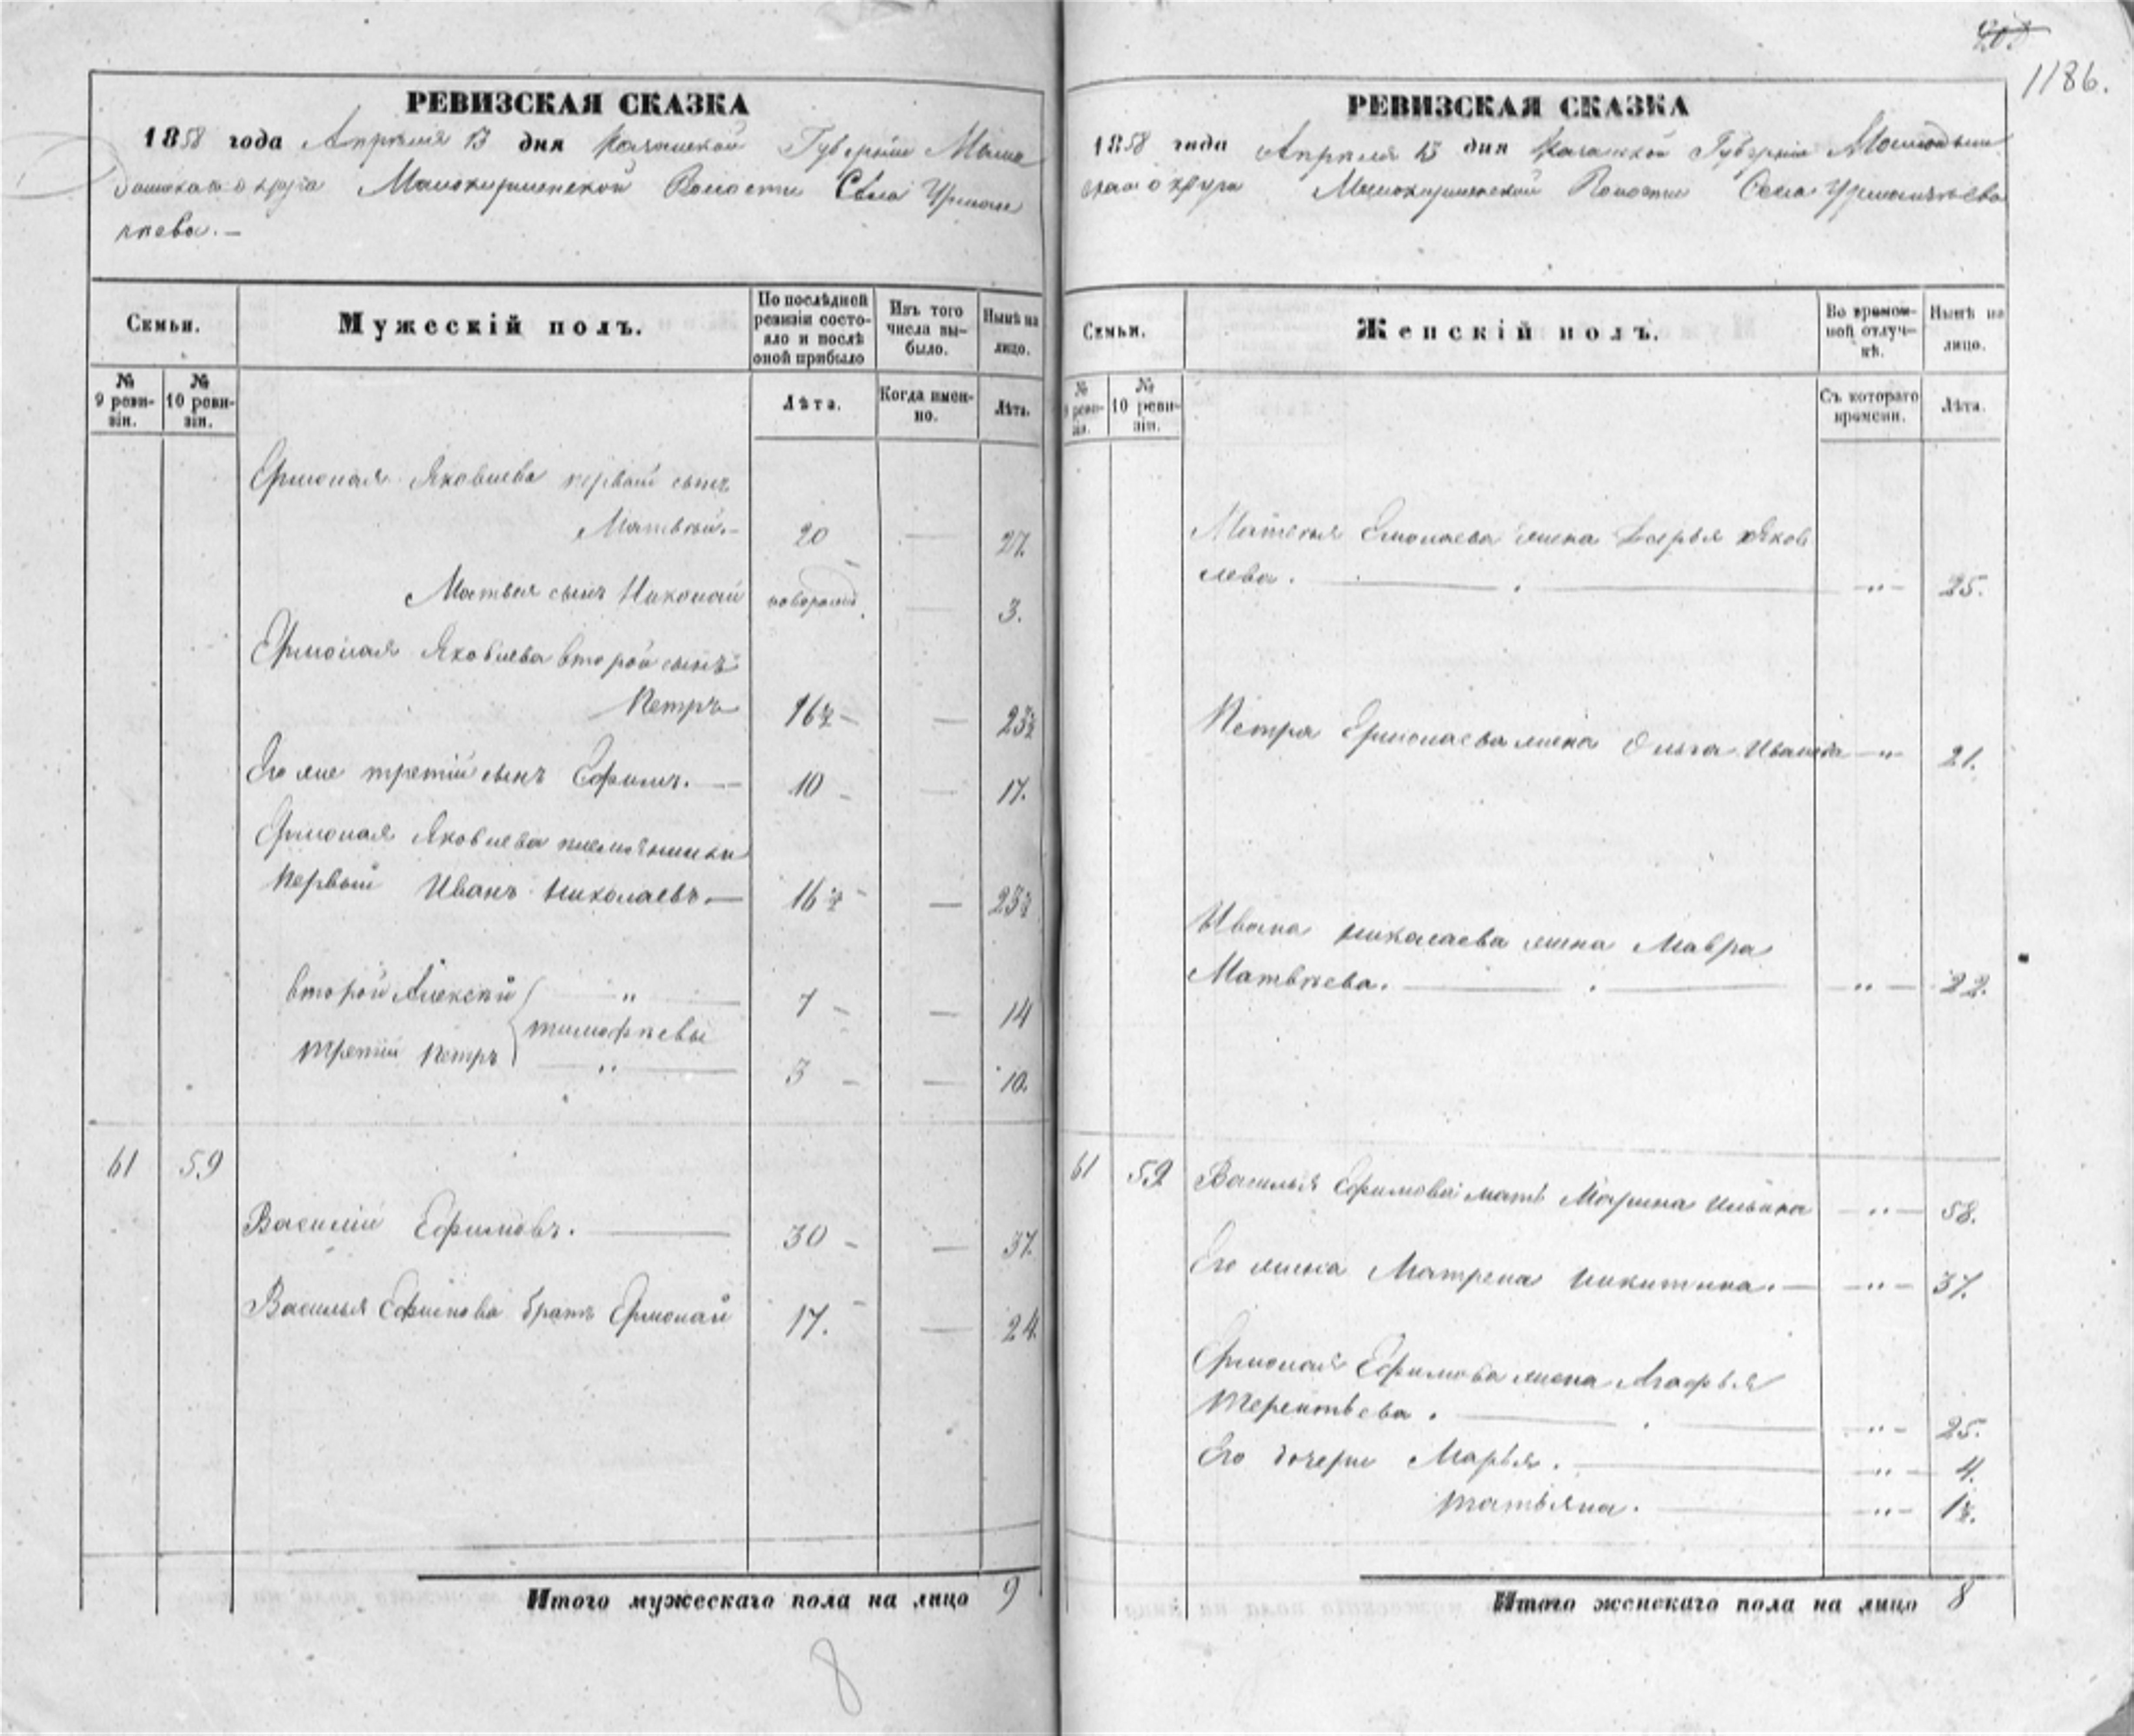 РЕВИЗСКАЯ СКАЗКА
1858 года Апрѣля 13 дня Казанской Губерніи Мама
дышскаго округа Малокирменской Волости Села Урман
чѣева.—
Семьи.
Мужескій полъ.
По послѣдней ревизіи состояло и послѣ оной прибыло
Изъ того числа выбыло.
Нынѣ на лицо.
№ 9 ревизіи.
№ 10 ревизіи.
Лѣта.
Когда именно.
Лѣта.
Ермолая Яковлева первый сынъ
Матвѣй.— 20 — 27.
Матвѣя сынъ Николай новорожд. — 3.
Ермолая Яковлева второй сынъ
Петръ 16½ — — 23½
Его же третій сынъ Ефимъ.— 10 — — 17.
Ермолая Яковлева племянники
Первый Иванъ Николаевъ.— 16½ — — 23½
второй Алексѣй „ 7 — — 14
тимофѣевы
третій Петръ „ 3 — — 10.
61 59
Василій Ефимовъ. — 30 — — 37.
Василья Ефимова братъ Ермолай 17. — 24.
Итого мужескаго пола на лицо 9
8
1186.
РЕВИЗСКАЯ СКАЗКА
1858 года Апрѣля 13 дня Казанской Губерніи Мамадыш
скаго округа Малокирменской Волости Села Урманчѣева
Семьи.
Женскій полъ.
Во временной отлучкѣ.
Нынѣ на лицо.
№ 9 ревизіи.
№ 10 ревизіи.
Съ котораго времени.
Лѣта.
Матвѣя Ермолаева жена Дарья Яков
лева. — „ — 25.
Петра Ермолаева жена Ольга Иванова — „ 21.
Ивана Николаева жена Мавра
Матвѣева. — „ — 22.
61 59 Василья Ефимова мать Марина Ильина — „ — 58.
Его жена Матрена Никитина. — „ — 37.
Ермолая Ефимова жена Агафья
Терентьева. — „ — 25.
Его дочери Марья. — „ — 4.
Татьяна. — „ — 1½.
Итого женскаго пола на лицо 8